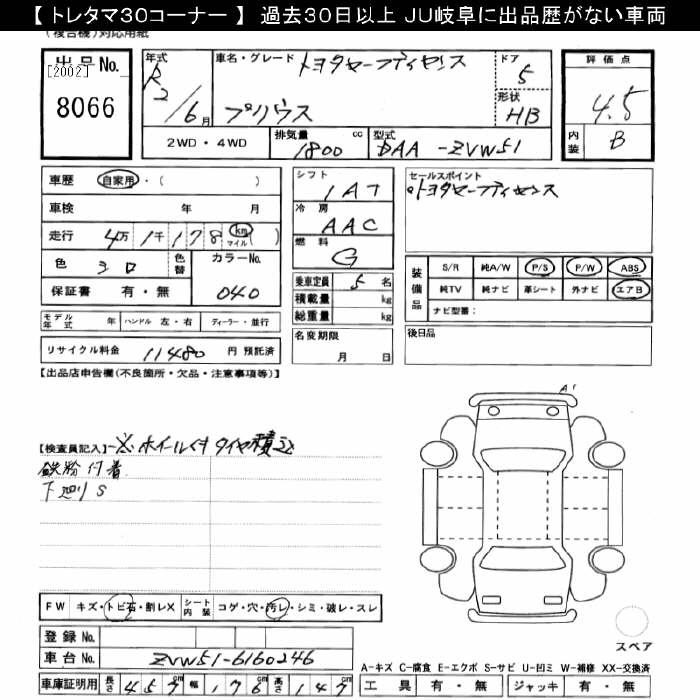 【トレタマ30コーナー】 過去30日以上 JU岐阜に出品歴がない車両
(複合機)対応用紙
出品No.
[2002]
8066
年式 R2/6月
車名・グレード トヨタセーフティセンス
プリウス
ドア 5
形状 HB
評価点 4.5
内装 B
2WD・4WD
排気量 1800 cc
型式 DAA-ZVW51
車歴 自家用・( )
車検 年 月
走行 4万1千178 km マイル ( )
色 シロ 色替 カラーNo. 040
保証書 有・無
シフト 1AT
冷房 AAC
燃料 G
乗車定員 5名
積載量 kg
総重量 kg
名変期限 月 日
セールスポイント
・トヨタセーフティセンス
装備品 S/R 純A/W P/S P/W ABS
純TV 純ナビ 革シート 外ナビ エアB
ナビ型番:
後日品
モデル年式 年 ハンドル 左・右 ディーラー・並行
リサイクル料金 11480 円 預託済
【出品店申告欄(不良箇所・欠品・注意事項等)】
A1
【検査員記入】 ※ホイール付タイヤ積込
鉄粉付着
下廻りS
FW キズ・トビ石・割レX シート内装 コゲ・穴・汚レ・シミ・破レ・スレ
登録No.
車台No. ZVW51-6160246
車庫証明用 長さ 457cm 幅 176cm 高さ 147cm
スペア
A-キズ C-腐食 E-エクボ S-サビ U-凹ミ W-補修 XX-交換済
工具 有・無 ジャッキ 有・無